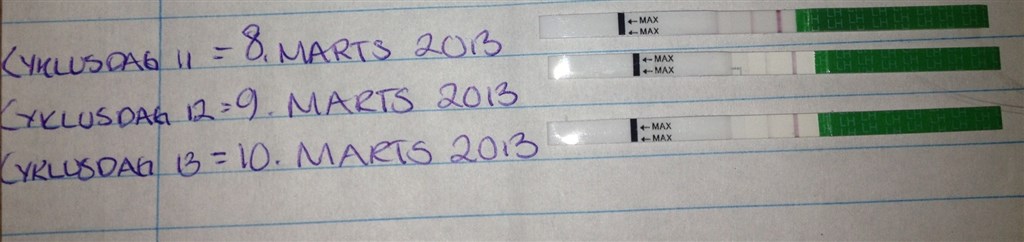 CYKLUSDAG 11 = 8. MARTS 2013
←MAX
←MAX
CYKLUSDAG 12=9. MARTS 2013
←MAX
←MAX
CYKLUSDAG 13 = 10. MARTS 2013
←MAX
←MAX